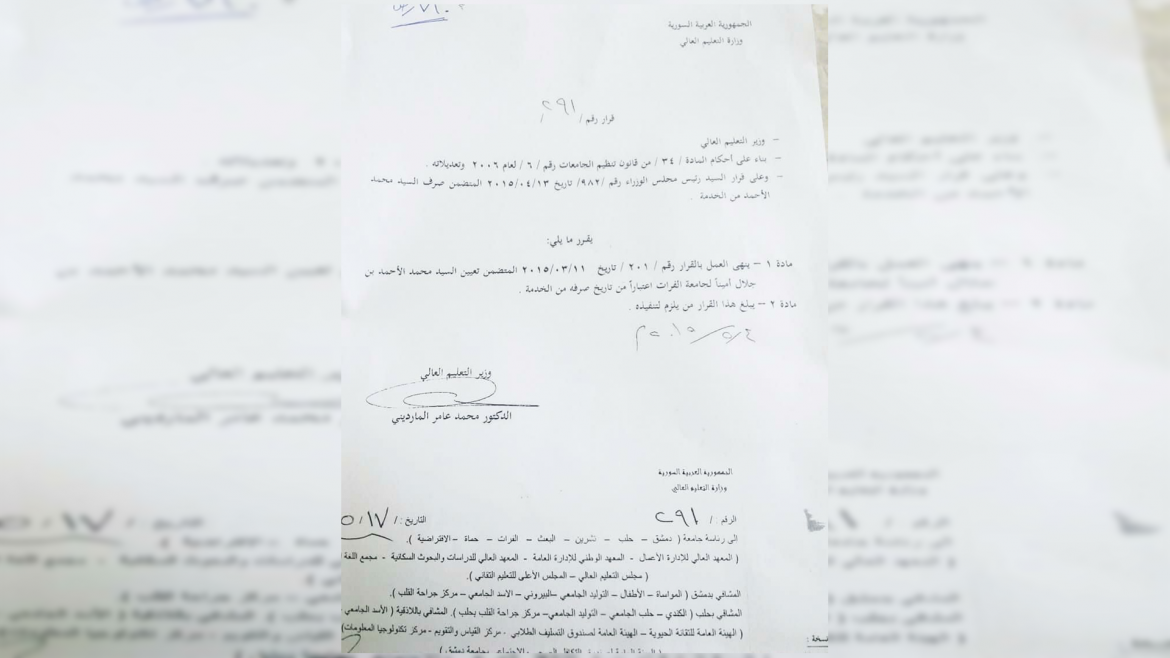 الجمهورية العربية السورية
وزارة التعليم العالي
قرار رقم / ٢٩١ /
– وزير التعليم العالي
– بناء على أحكام المادة / ٣٤ / من قانون تنظيم الجامعات رقم / ٦ / لعام ٢٠٠٦ وتعديلاته .
– وعلى قرار السيد رئيس مجلس الوزراء رقم /٩٨٢/ تاريخ ٢٠١٥/٠٤/١٣ المتضمن صرف السيد محمد
الأحمد من الخدمة .
يقرر ما يلي:
مادة ١ – ينهى العمل بالقرار رقم / ٢٠١ / تاريخ ٢٠١٥/٠٣/١١ المتضمن تعيين السيد محمد الأحمد بن
جلال أميناً لجامعة الفرات اعتباراً من تاريخ صرفه من الخدمة .
مادة ٢ – يبلغ هذا القرار من يلزم لتنفيذه .
وزير التعليم العالي
الدكتور محمد عامر المارديني
الجمهورية العربية السورية
وزارة التعليم العالي
الرقم / ٢٩١ التاريخ : /
إلى رئاسة جامعة ( دمشق – حلب – تشرين – البعث – الفرات – حماة – الافتراضية ).
( المعهد العالي للإدارة الأعمال - المعهد الوطني للإدارة العامة – المعهد العالي للدراسات والبحوث السكانية - مجمع اللغة
( مجلس التعليم العالي – المجلس الأعلى للتعليم التقاني ).
المشافي بدمشق ( المواساة – الأطفال – التوليد الجامعي –البيروني – الاسد الجامعي – مركز جراحة القلب ).
المشافي بحلب ( الكندي – حلب الجامعي – التوليد الجامعي– مركز جراحة القلب بحلب ). المشافي باللاذقية ( الأسد الجامعي
( الهيئة العامة للتقانة الحيوية – الهيئة العامة لصندوق التسليف الطلابي . مركز القياس والتقويم - مركز تكنولوجيا المعلومات)
بجامعة دمشق ).